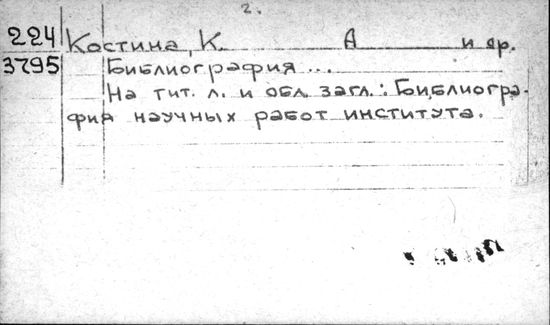 2.
224 Костина, К. А и др.
3795 Библиография ...
На тит. л. и обл. загл.: Библиогра-
фия научных работ института.